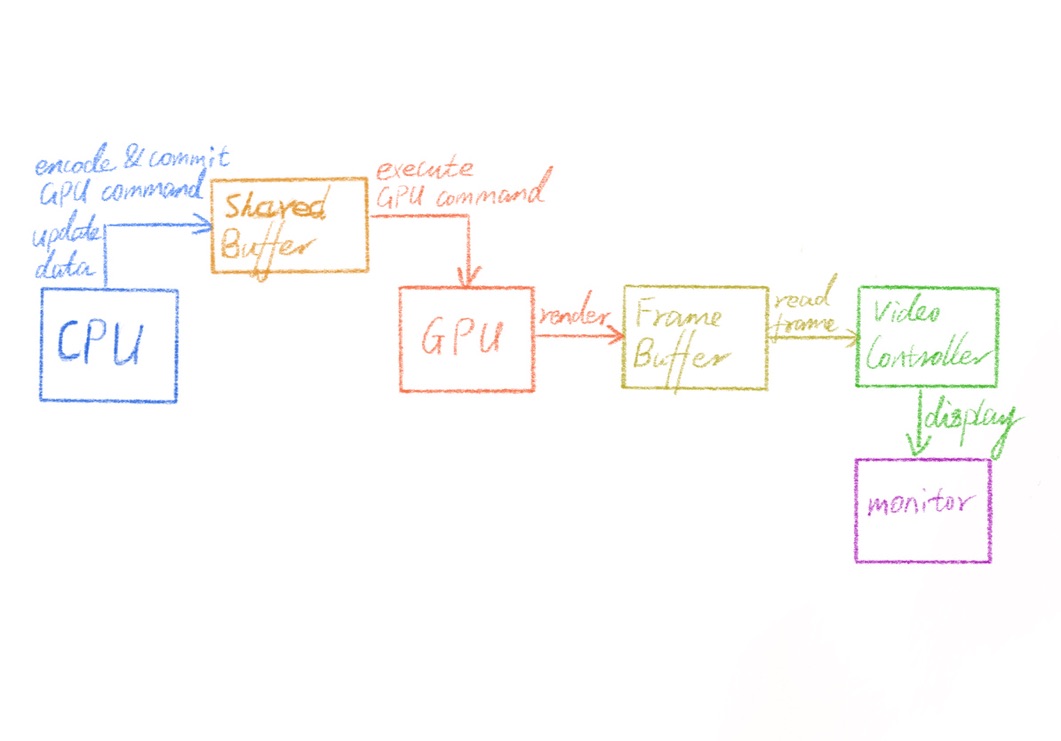 encode & commit
GPU command
update
data
CPU
Shared
Buffer
execute
GPU command
GPU
render
Frame
Buffer
read
frame
Video
Controller
display
monitor